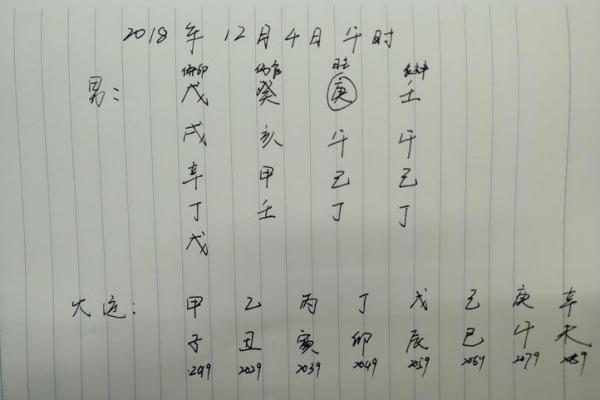 2018年 12月4日午时
偏印 伤官
男: 戊 癸 庚 壬
戌 亥 午 午
辛 甲 己 己
丁 壬 丁 丁
戊
大运: 甲 乙 丙 丁 戊 己 庚 辛
子 丑 寅 卯 辰 巳 午 未
2019 2029 2039 2049 2059 2069 2079 2089